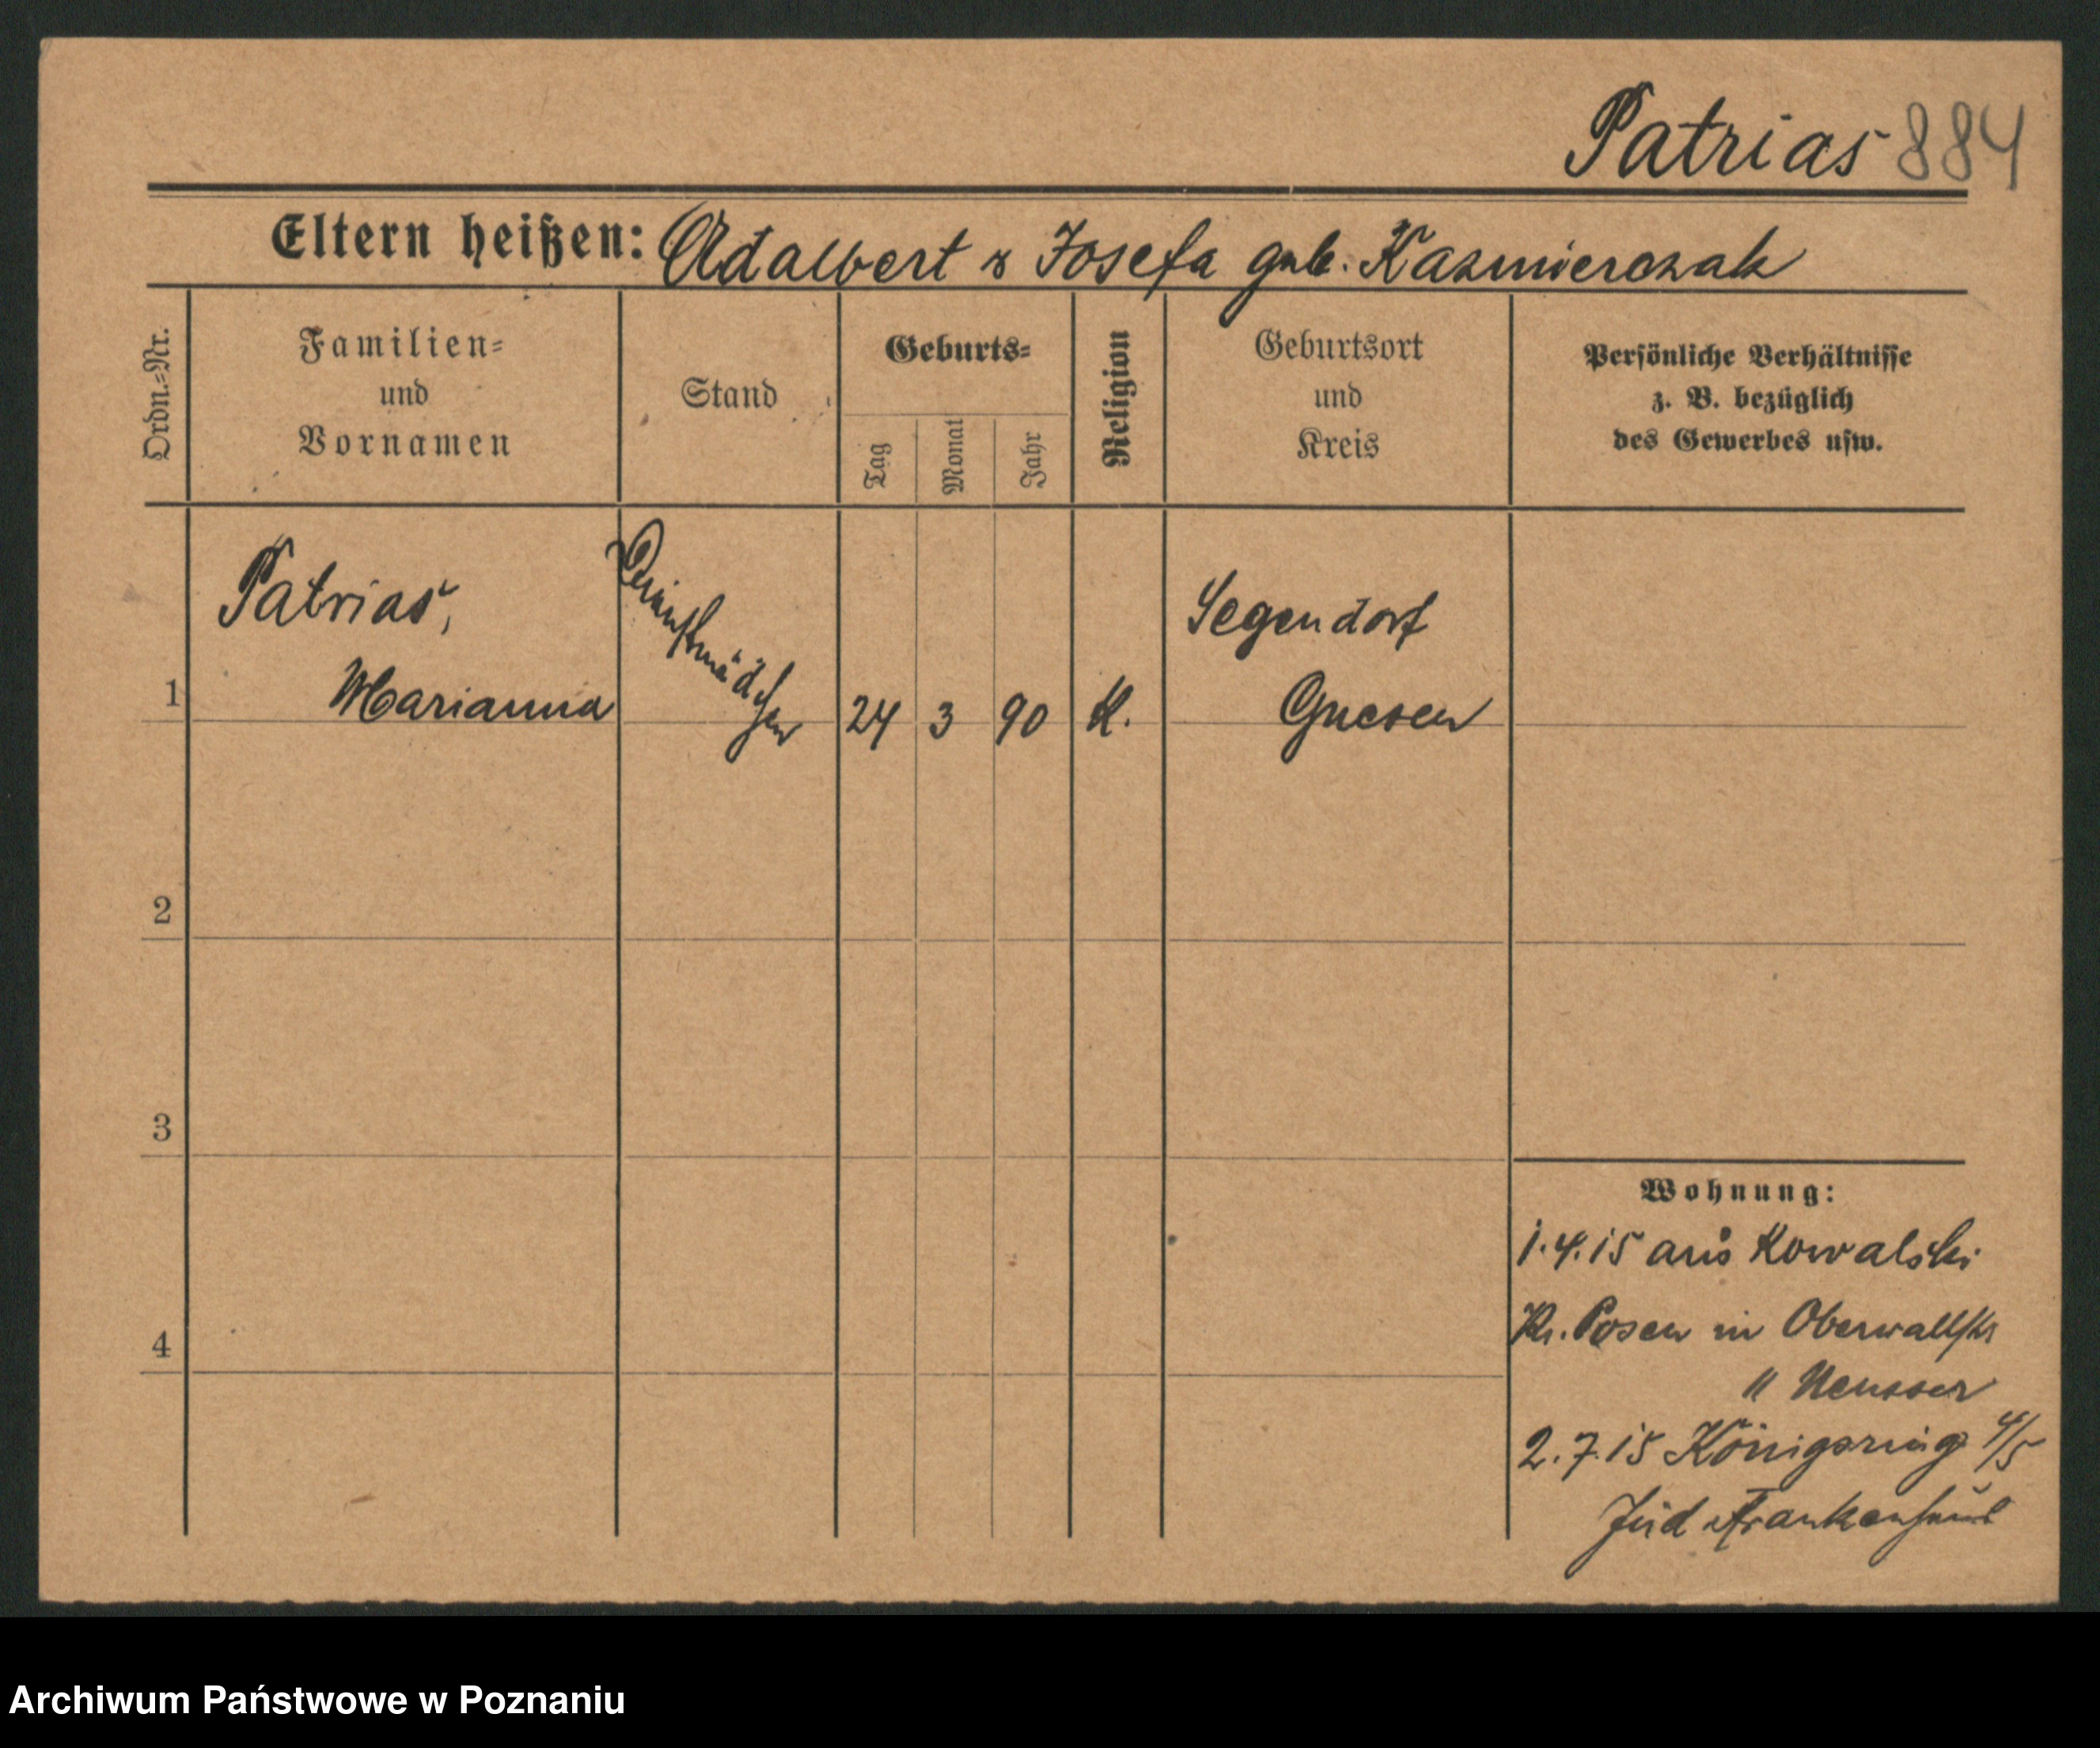 Patrias 884
Eltern heißen: Adalbert & Josefa geb. Kazmierczak
Ordn.=Nr.
Familien=
und
Vornamen
Stand
Geburts=
Tag
Monat
Jahr
Religion
Geburtsort
und
Kreis
Persönliche Verhältnisse
z. B. bezüglich
des Gewerbes usw.
1
Patrias,
Marianna
Dienstmädchen
24
3
90
K.
Segendorf
Gnesen
2
3
4
Wohnung:
1.4.15 aus Kowalski
Kr. Posen in Oberwallstr
"
2.7.15 Königsring 4/5
Jüd Krankenhaus
Archiwum Państwowe w Poznaniu